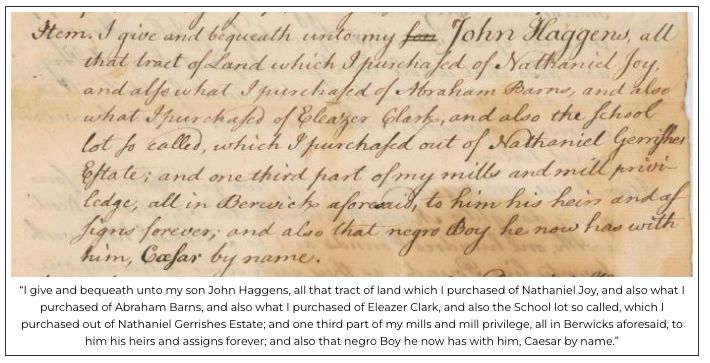 Item. I give and bequeath unto my son John Haggens, all
that tract of Land which I purchased of Nathaniel Joy,
and also what I purchased of Abraham Barns, and also
what I purchased of Eleazer Clark, and also the School
lot so called, which I purchased out of Nathaniel Gerrishes
Estate; and one third part of my mills and mill privi-
ledge, all in Berwicks aforesaid, to him his heirs and as
signs forever; and also that negro Boy he now has with
him, Cæsar by name.
“I give and bequeath unto my son John Haggens, all that tract of land which I purchased of Nathaniel Joy, and also what I
purchased of Abraham Barns, and also what I purchased of Eleazer Clark, and also the School lot so called, which I
purchased out of Nathaniel Gerrishes Estate; and one third part of my mills and mill privilege, all in Berwicks aforesaid, to
him his heirs and assigns forever; and also that negro Boy he now has with him, Caesar by name.”